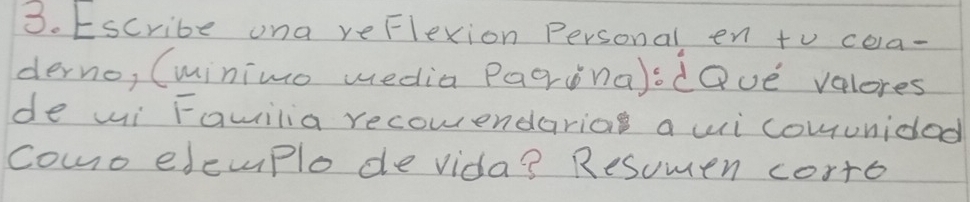 3. Escribe una reFlexion Personal en tu cua-
derno, (minimo media Pagina): ¿Qué valores
de mi Familia recomendarias a mi comunidad
Como ejemplo de vida? Resumen corto